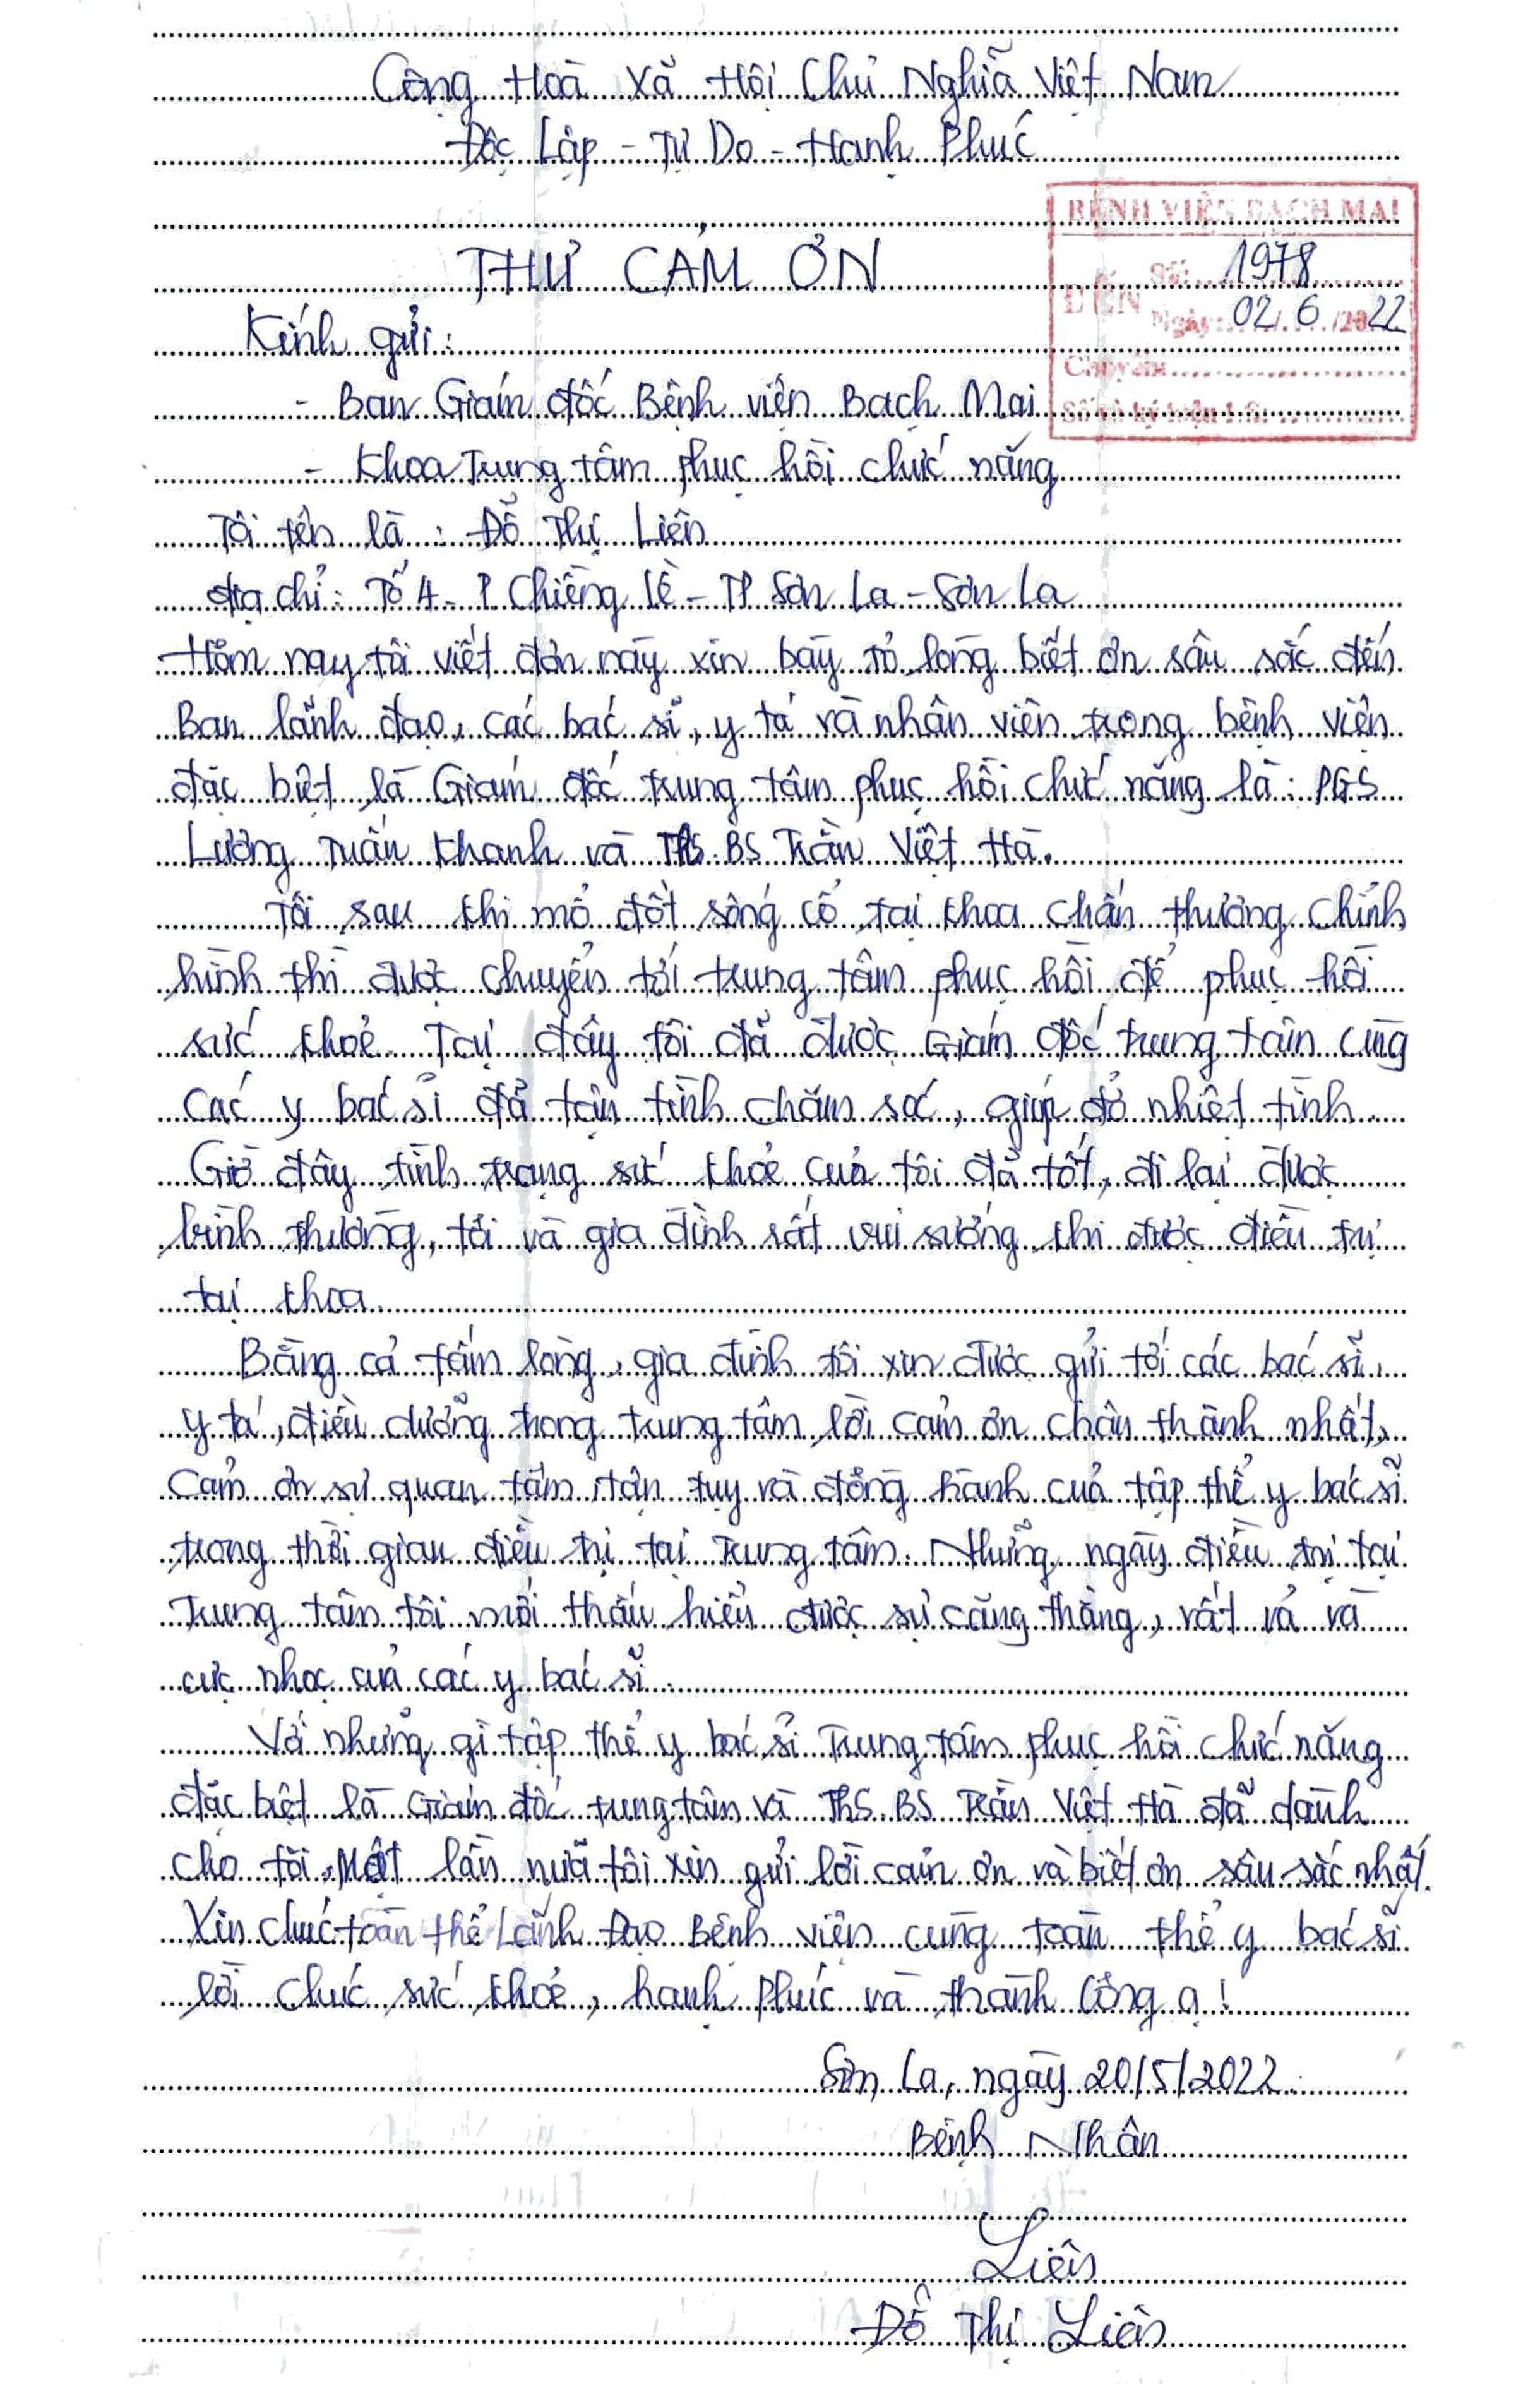 Cộng Hoà Xã Hội Chủ Nghĩa Việt Nam
Độc Lập - Tự Do - Hạnh Phúc
BỆNH VIỆN BẠCH MAI
THƯ CẢM ƠN
Số: 1978
ĐẾN
Ngày: 02/6/2022
Kính gửi:
Chuyển:
- Ban Giám đốc Bệnh viện Bạch Mai
Số và ký hiệu HS:
- Khoa Trung tâm phục hồi chức năng
Tôi tên là: Đỗ Thị Liên
địa chỉ: Tổ 4 - P Chiềng Lề - TP Sơn La - Sơn La
Hôm nay tôi viết đơn này xin bày tỏ lòng biết ơn sâu sắc đến
Ban lãnh đạo, các bác sĩ, y tá và nhân viên trong bệnh viện
đặc biệt là Giám đốc trung tâm phục hồi chức năng là: PGS
Lương Tuấn Khanh và ThS BS Trần Việt Hà.
Tôi sau khi mổ đốt sống cổ tại khoa chấn thương chỉnh
hình thì được chuyển tới trung tâm phục hồi để phục hồi
sức khoẻ. Tại đây tôi đã được Giám đốc trung tâm cùng
các y bác sĩ đã tận tình chăm sóc, giúp đỡ nhiệt tình
Giờ đây tình trạng sức khoẻ của tôi đã tốt, đi lại được
bình thường, tôi và gia đình rất vui sướng khi được điều trị
tại khoa
Bằng cả tấm lòng, gia đình tôi xin được gửi tới các bác sĩ,
y tá, điều dưỡng trong trung tâm lời cảm ơn chân thành nhất,
Cảm ơn sự quan tâm, tận tụy và đồng hành của tập thể y bác sĩ
trong thời gian điều trị tại Trung tâm. Những ngày điều trị tại
Trung tâm tôi mới thấu hiểu được sự căng thẳng, vất vả và
cực nhọc của các y bác sĩ.
Với những gì tập thể y bác sĩ Trung tâm phục hồi chức năng
đặc biệt là Giám đốc trung tâm và ThS BS Trần Việt Hà đã dành
cho tôi, Một lần nữa tôi xin gửi lời cảm ơn và biết ơn sâu sắc nhất.
Xin chúc toàn thể Lãnh Đạo Bệnh viện cùng toàn thể y bác sĩ
lời chúc sức khoẻ, hạnh phúc và thành công ạ!
Sơn La, ngày 20/5/2022
Bệnh Nhân
Liên
Đỗ Thị Liên